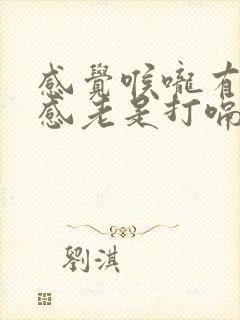 感覺喉嚨有
感老是打嗝
劉淇